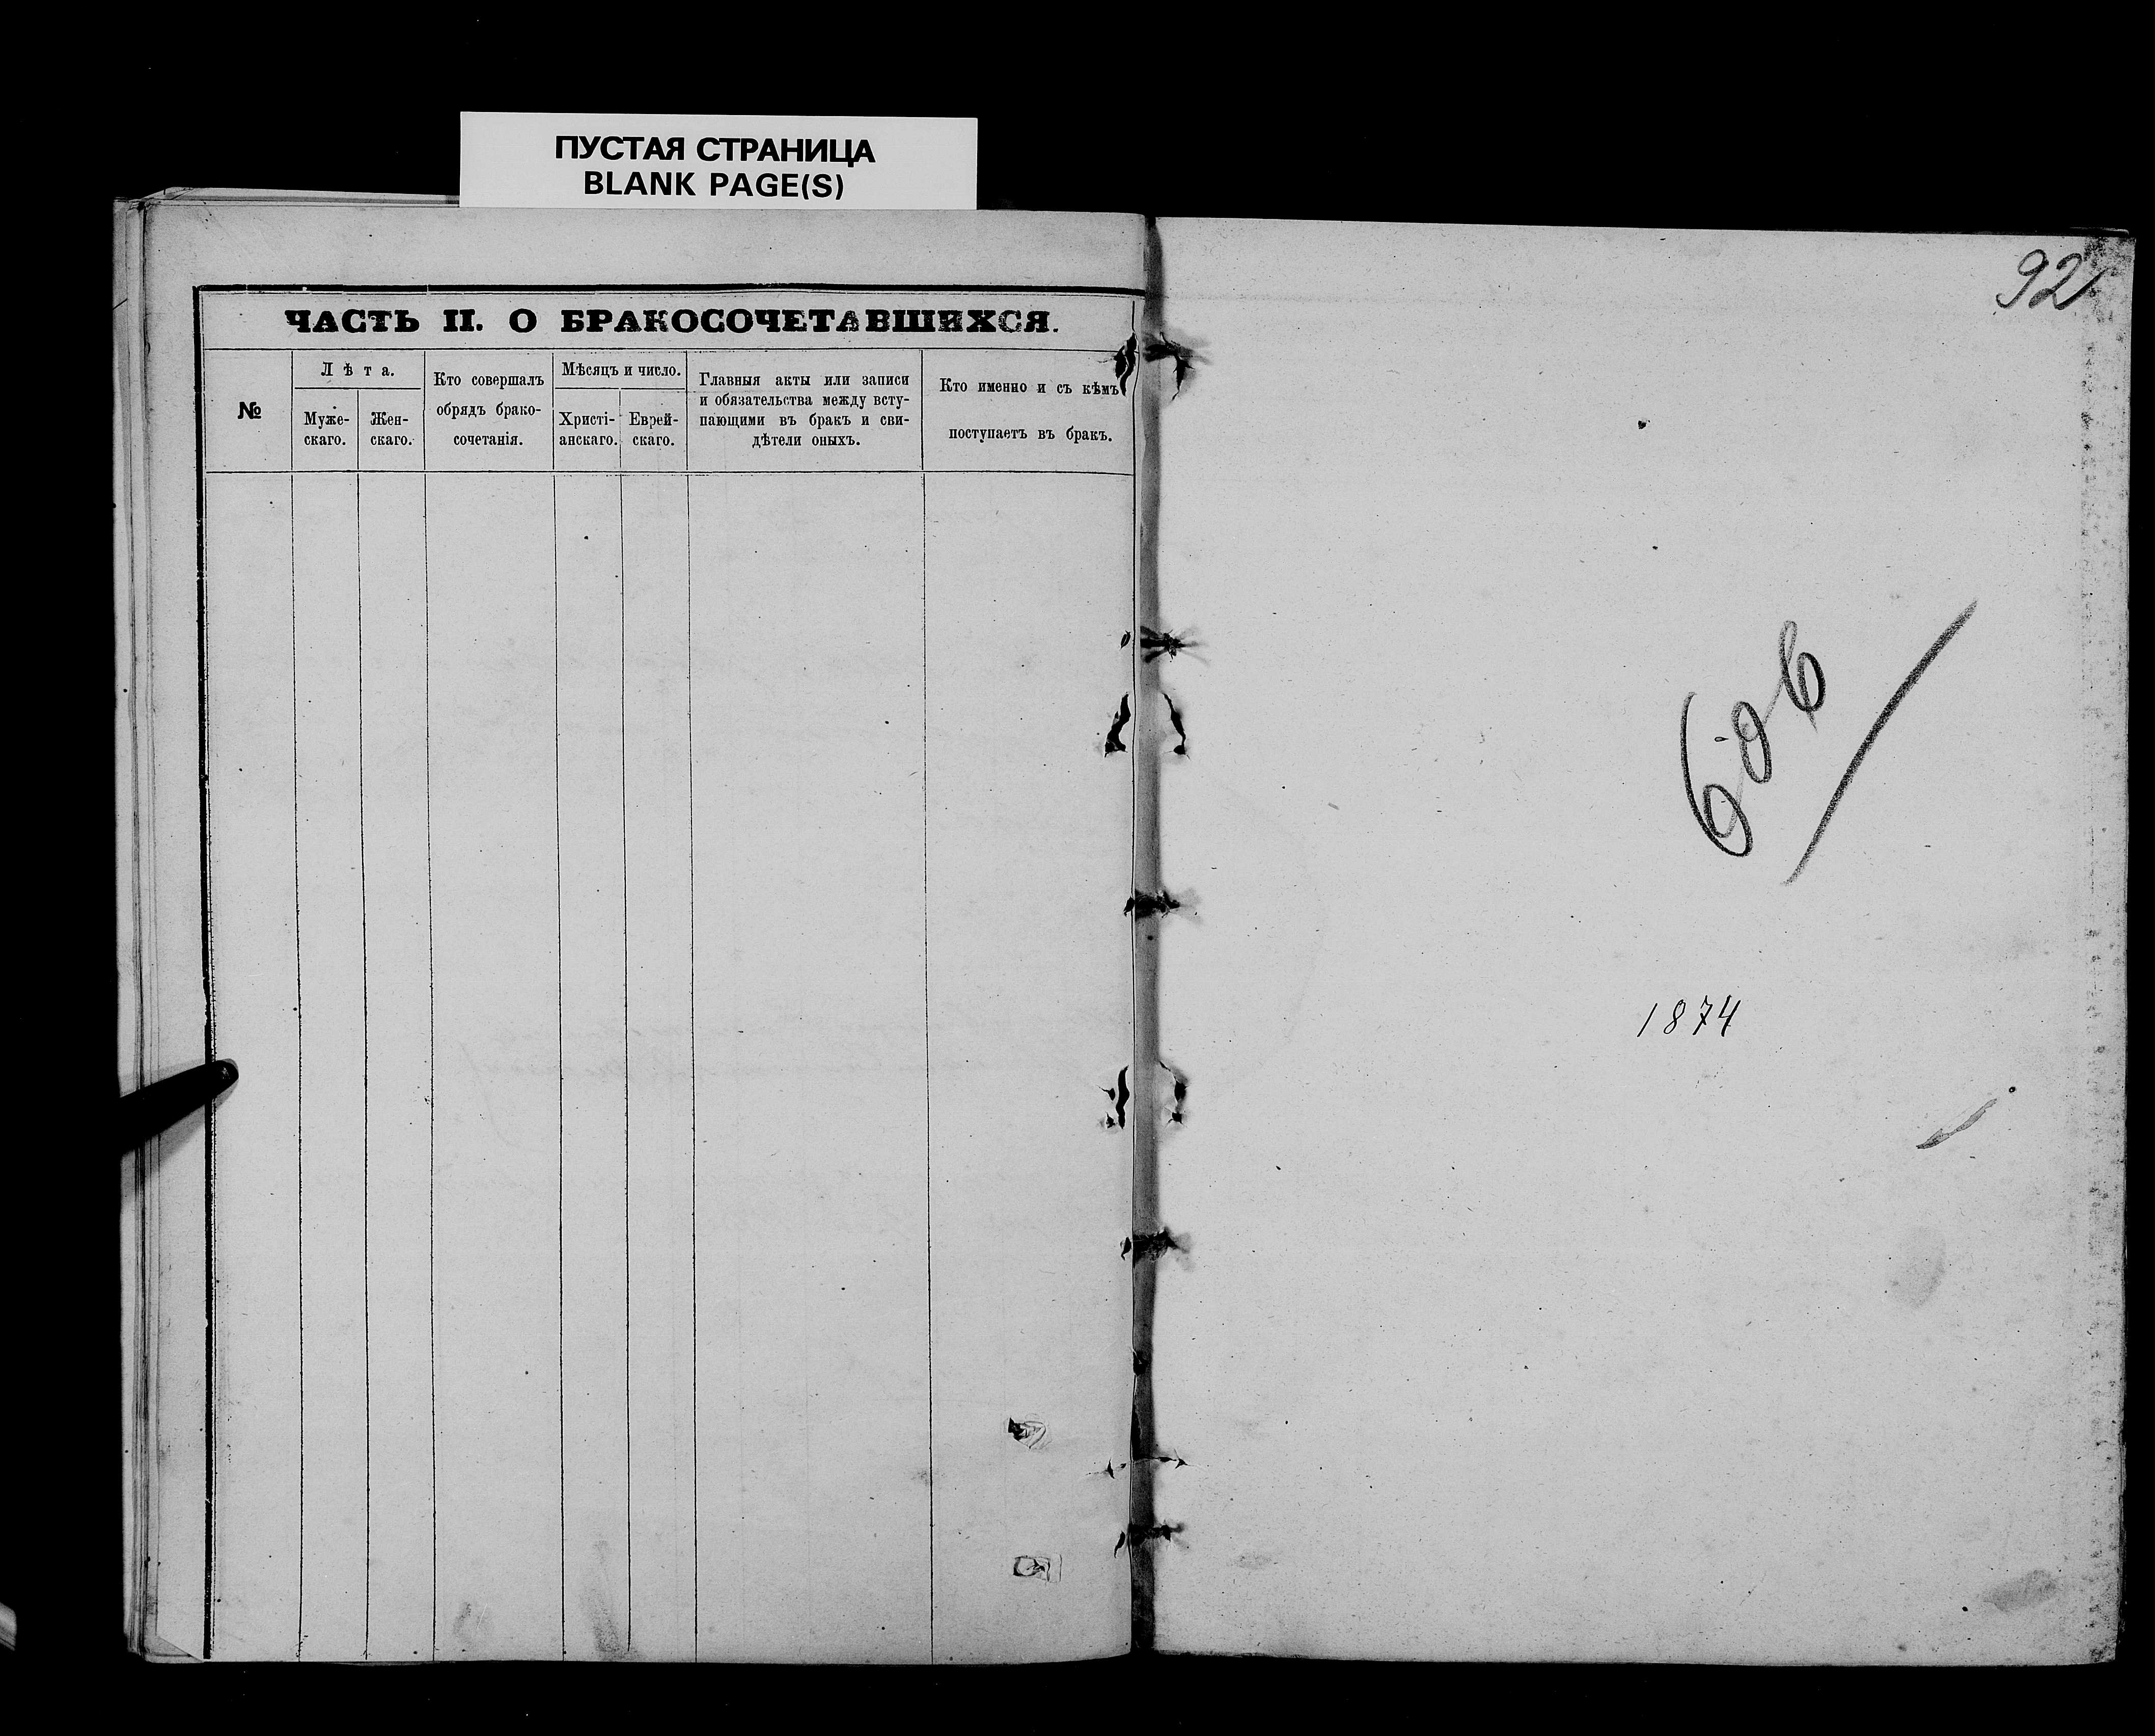 ПУСТАЯ СТРАНИЦА
BLANK PAGE(S)
ЧАСТЬ II. О БРАКОСОЧЕТАВШИХСЯ.
№
Лѣта.
Муже-
скаго.
Жен-
скаго.
Кто совершалъ
обрядъ брако-
сочетанія.
Мѣсяцъ и число.
Христі-
анскаго.
Еврей-
скаго.
Главныя акты или записи
и обязательства между всту-
пающими въ бракъ и сви-
дѣтели оныхъ.
Кто именно и съ кѣмъ
поступаетъ въ бракъ.
92
1874